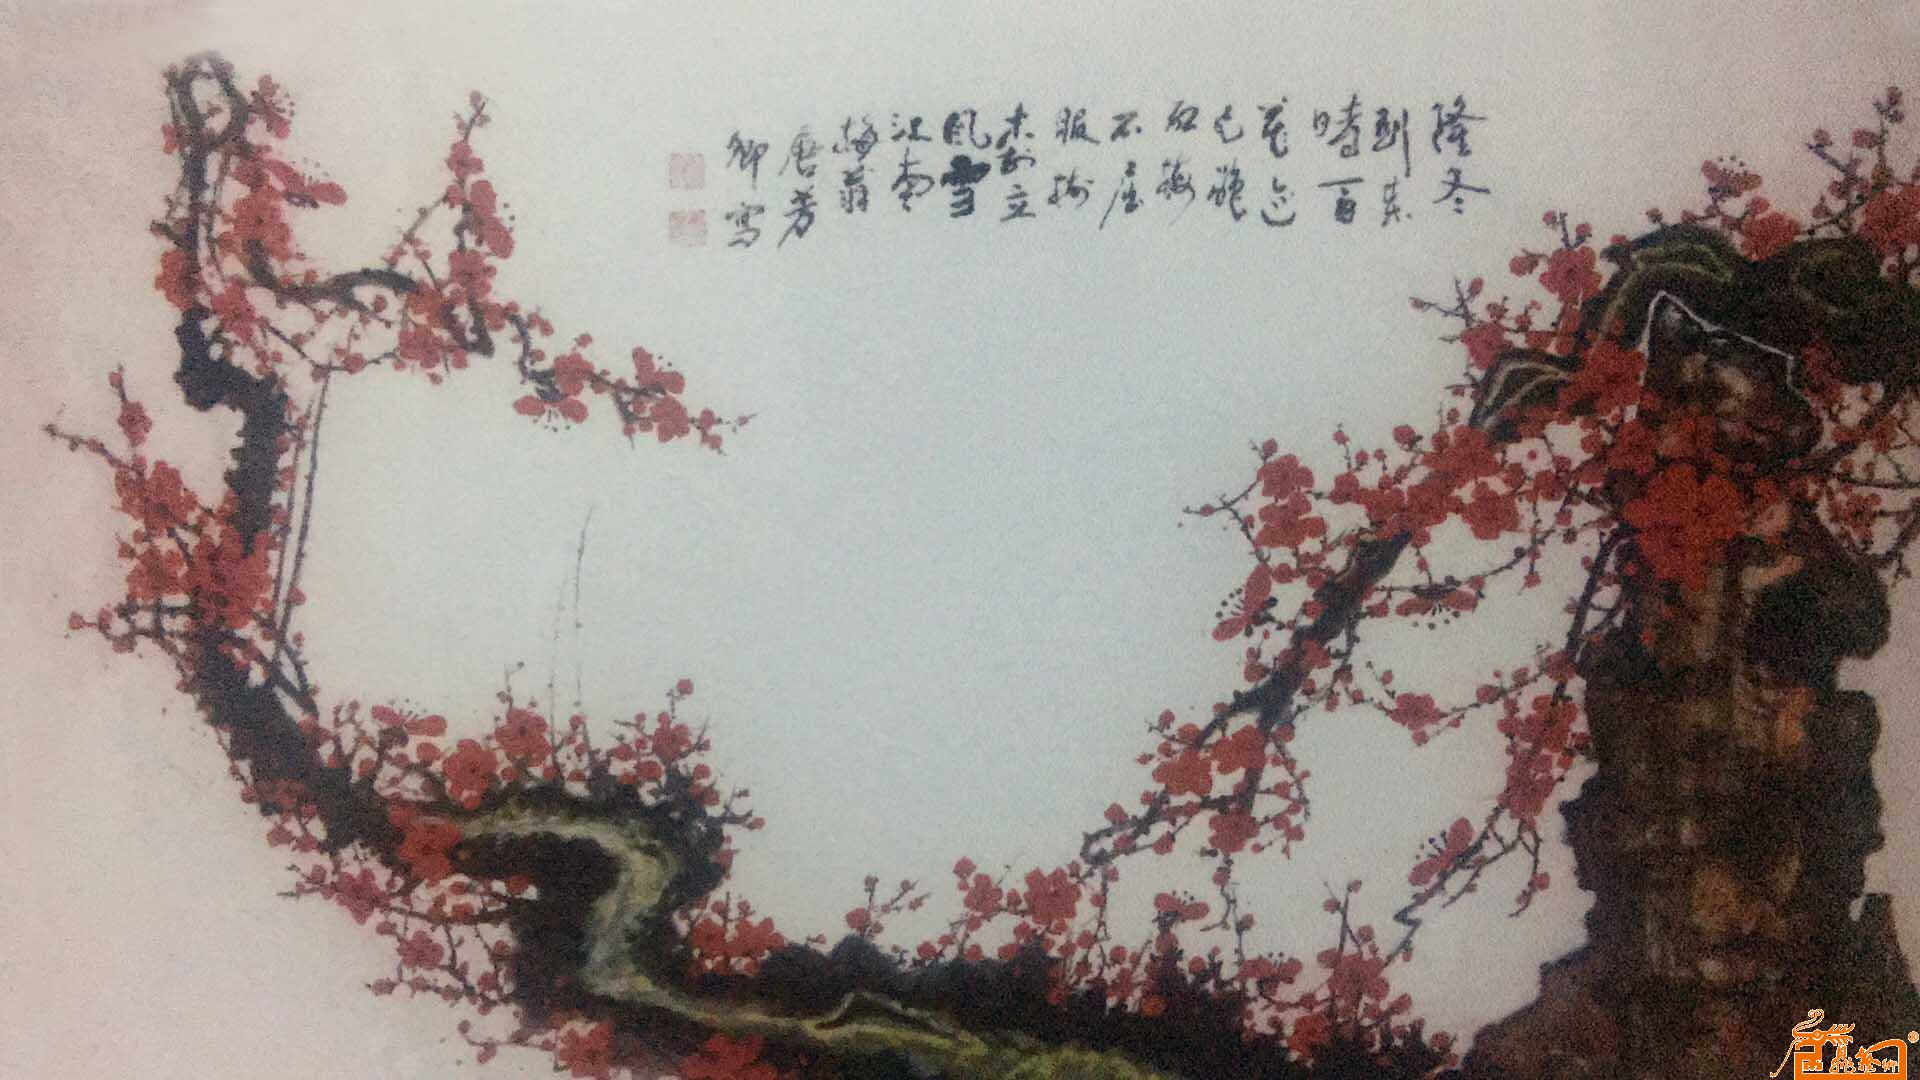 隆冬
到来
時百
花迹
已绝
红梅
不屈
服树
树立
风雪
江南
梅翁
唐芳
卿写